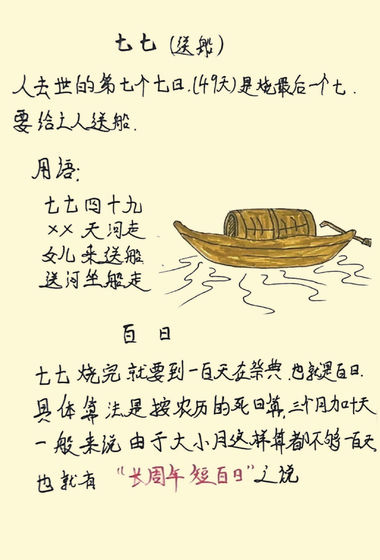 七七 (送船)
人去世的第七个七日.(49天)是烧最后一个七.
要给亡人送船.
用语:
七七四十九
×× 天河走
女儿来送船
送河坐船走
百日
七七烧完就要到一百天在祭典.也就是百日.
具体算法是按农历的死日算,三个月加十天
一般来说由于大小月这样算都不够一百天
也就有 “长周年短百日”之说